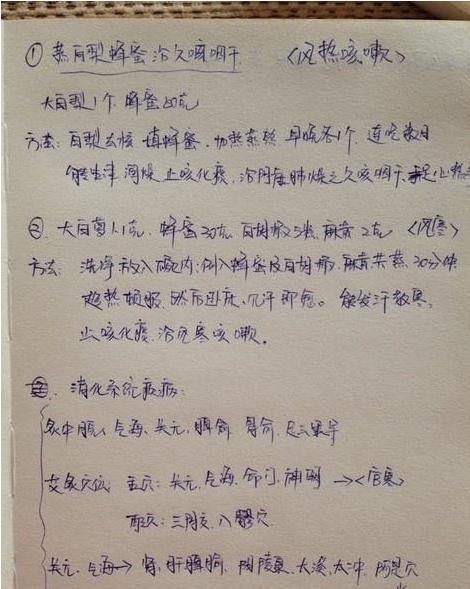 ① 蒸百梨蜂蜜治久咳咽干 〈风热咳嗽〉
大百梨1个 蜂蜜50克
方法: 百梨去核 填蜂蜜, 加热蒸熟 早晚各1个 连吃数日
能生津润燥 止咳化痰, 治阴虚肺燥之久咳咽干 手足心热
②. 大白萝卜1个, 蜂蜜30克 百胡椒5粒 麻黄2克 〈风寒〉
方法: 洗净 放入碗内, 倒入蜂蜜及百胡椒, 麻黄共蒸 30分钟
趁热顿服, 然后卧床, 见汗即愈。 能发汗散寒,
止咳化痰 治风寒咳嗽。
消化系统疾病:
中脘、气海、关元, 脾俞 胃俞 足三里
艾灸穴位 主穴: 关元, 气海, 命门, 神阙 →〈宫寒〉
配穴: 三阴交, 八髎穴
关元、气海→ 肾, 肝 脾 阴陵泉 太溪, 太冲, 阿是穴